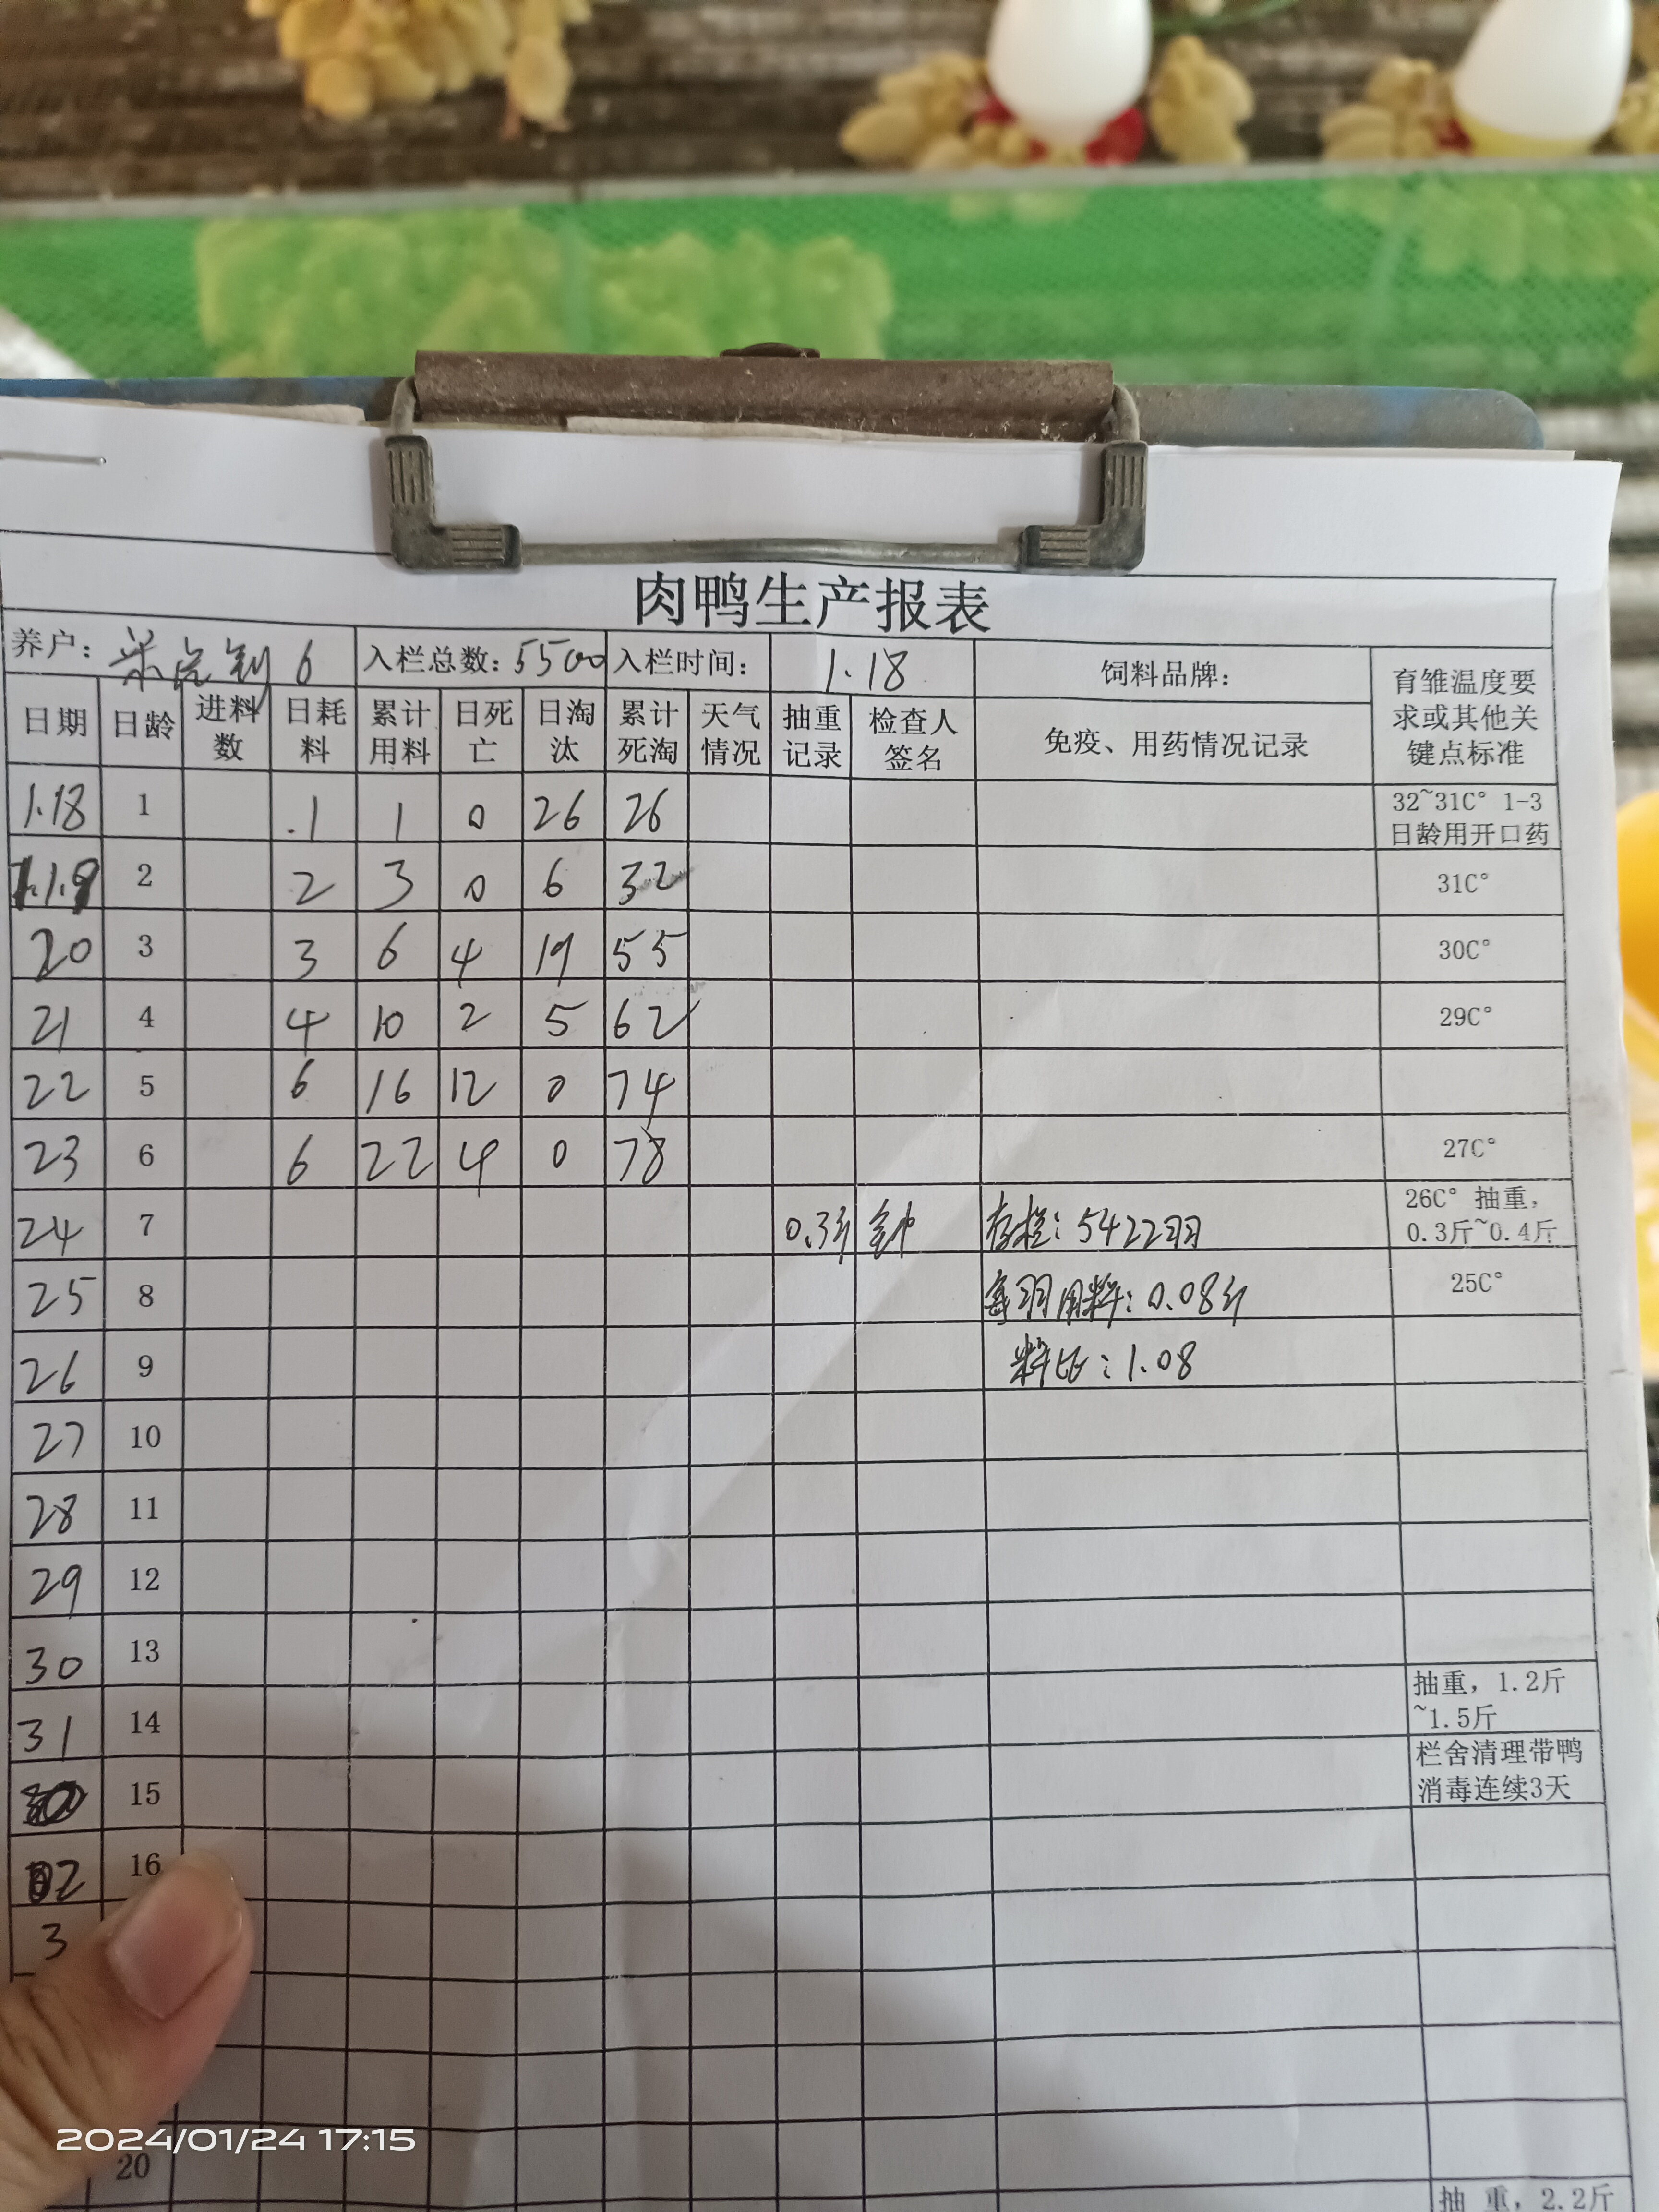 肉鸭生产报表
养户: 6 入栏总数: 5500 入栏时间: 1.18 饲料品牌: 育雏温度要求或其他关键点标准
日期 日龄 进料数 日耗料 累计用料 日死亡 日淘汰 累计死淘 天气情况 抽重记录 检查人签名 免疫、用药情况记录
1.18 1 .1 1 0 26 26 32~31C° 1-3日龄用开口药
1.19 2 2 3 0 6 32 31C°
20 3 3 6 4 19 55 30C°
21 4 4 10 2 5 62 29C°
22 5 6 16 12 0 74
23 6 6 22 4 0 78 27C°
24 7 0.3斤 存栏: 5422羽 26C° 抽重, 0.3斤~0.4斤
25 8 每羽用料: 0.08斤 25C°
26 9 料比: 1.08
27 10
28 11
29 12
30 13
31 14 抽重, 1.2斤~1.5斤
15 栏舍清理带鸭消毒连续3天
2 16
3
20
抽 重, 2.2斤
2024/01/24 17:15